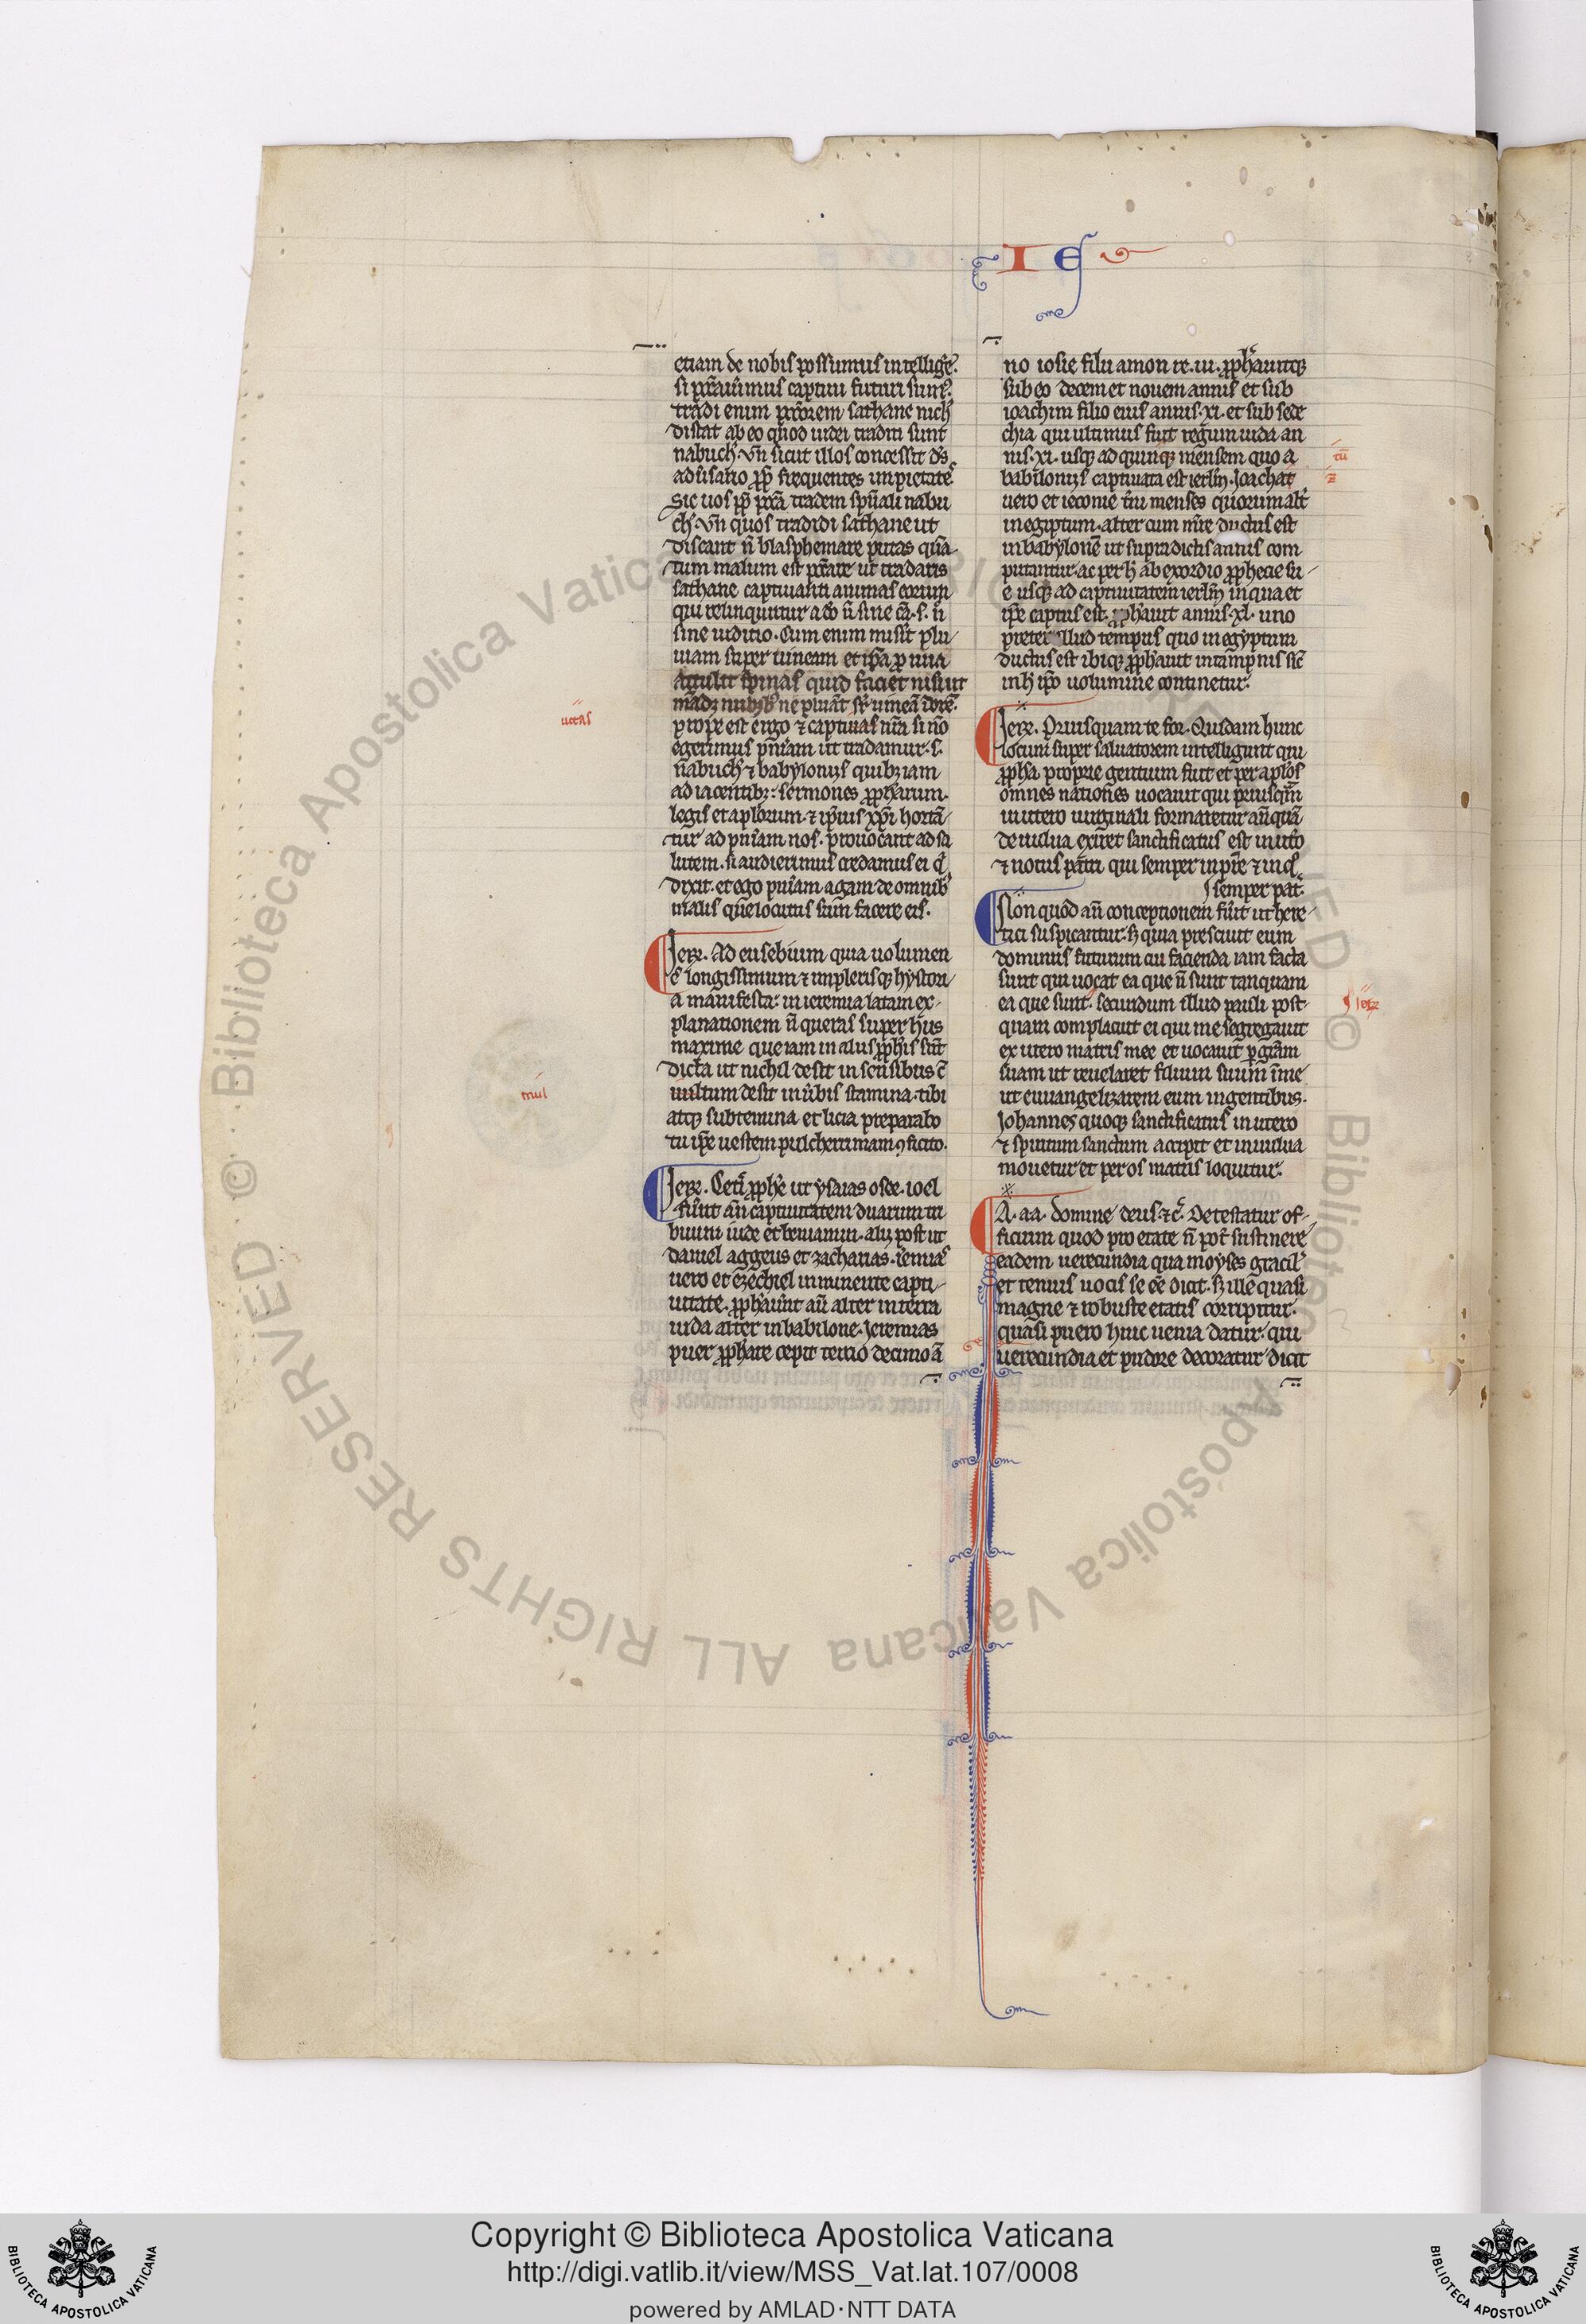 I E
etiam de nobis possumus intelligẽ.
si pccauimus captiui futuri sumꝰ.
tradi enim pccorem sathane nich
distat ab eo quod iudei traditi sunt
nabuch. vñ sicut illos concessit ds
aduersario ꝓp frequentes impietates
Sic uos ꝓp pccã tradem spũali nabu
ch. vñ quos tradidi sathane ut
discant ñ blasphemare putas quã
tum malum est pccare ut tradatis
sathane captiuanti animas eorum
qui relinquntur a deo ñ sine cã. s. ñ
sine iuditio. Cum enim miserit plu
uiam super uineam et ipa ꝓ uua
attulit spinas quid faciet nisi ut
mãdꝫ nubibꝰ ne pluãt sꝑ uineã
prope est ergo ⁊ captiuitas nr̃a si nõ
egerimus pñiam ut tradamur. s.
nabuch ⁊ babylonijs quibꝫ iam
adiacentibꝫ: sermones ꝓpharum.
legis et aplorum. ⁊ ipsius xp̃i hortã
tur ad pñiam nos. prouocant ad sa
lutem. si audierimus credamus ei q̃
dixit. et ego pñiam agam de omnibꝰ
malis que locutus sum facere eis.
Jerꝫ. Ad eusebium quia uolumen
ẽ longissimum ⁊ impletisqꝫ hystori
a manifesta: in ieremia latam ex
planationem ñ queras super hijs
maxime que iam in alijs ꝓphis sũt
dicta ut nichil desit in sensibus ⁊
multum desit in ũbis stamina tibi
atqꝫ subtemina et licia preparabo
tu ipse uestem pulcherrimam ꝯficito.
Jerꝫ. Ceti ꝓphe ut ysaias osee. ioel
fuerũt añ captiuitatem duarum tri
buum iude et beniamin. alij post ut
daniel aggeus et zacharias. ieremias
uero et ezechiel imminente capti
uitate. ꝓphauerũt aũ alter in terra
iuda alter in babilone. Jeremias
puer ꝓphare cepit tertio decimo ã
no iosie filii amon re. iu. ꝓphauitqꝫ
sub eo decem et nouem annis et sub
ioachim filio eius annis. xi. et sub sede
chia qui ultimus fuit regum iuda an
nis. xi. usqꝫ ad quinqꝫ mensem quo a
babilonijs captiuata est ierlm. Joachat
uero et ieconie tres menses quorum alt
in egiptum. alter cum mr̃e ductus est
in babylonẽ ut supradictis annis com
putantur. ac per h ab exordio ꝓphecie su
e usqꝫ ad captiuitatem ierlm in qua et
ipse captus est. ꝓphauit annis. xl. uno
preter illud tempus quo in egyptum
ductus est ibiqꝫ ꝓphauit in tampnis sic
in h ipo uolumine continetur.
Jerꝫ. Priusquam te for. Quidam hunc
locum super saluatorem intelligunt qui
ꝓpha proprie gentium fuit et per aplos
omnes nationes uocauit qui priusqm̃
in utero uirginali formaretur añquã
de uulua exiret sanctificatus est in utero
⁊ notus patri qui semper in pr̃e ⁊ in q̃
semper pat.
Non quod añ conceptionem fuerit ut here
tici suspicantur. sꝫ quia presciuit eum
dominus futurum cui facienda iam facta
sunt qui uocat ea que ñ sunt tanquam
ea que sunt. secundum illud pauli post
quam complacuit ei qui me segregauit
ex utero matris mee et uocauit ꝑ grãm
suam ut reuelaret filium suum ĩ me
ut euuangelizarem eum in gentibus.
Johannes quoqꝫ sanctificatus in utero
⁊ spiritum sanctum accipit et in uulua
mouetur et per os matris loquitur.
A. aa. domine deus. ⁊c̃. Detestatur of
ficium quod pro etate ñ pot sustinere
eadem uerecundia qua moyses gracil
et tenuis uocis se eẽ dicit. sꝫ ille quasi
magne ⁊ robuste etatis corripitur.
quasi puero huic uenia datur. qui
uerecundia et pudore decoratur dicit
mul
Copyright © Biblioteca Apostolica Vaticana
http://digi.vatlib.it/view/MSS_Vat.lat.107/0008
powered by AMLAD·NTT DATA
BIBLIOTECA APOSTOLICA VATICANA
BIBLIOTECA APOSTOLICA VATICANA
© Biblioteca Apostolica Vaticana ALL RIGHTS RESERVED